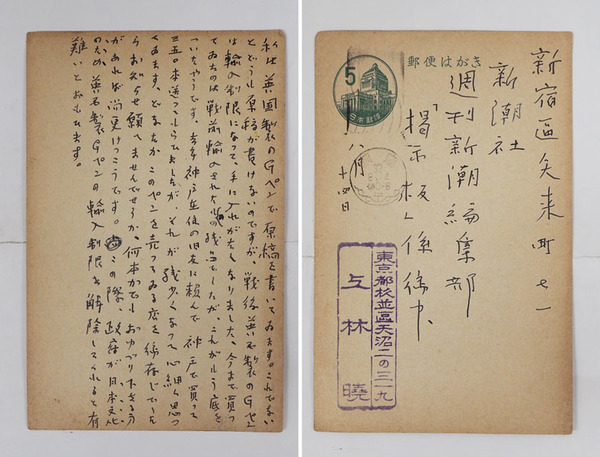 私は英国製のGペンで原稿を書いてゐます。これでない
とどうも原稿が書けないのですが、戦後英国製のGペン
は輸入制限になって、手に入れがたくなりました。今まで買っ
てゐたのは戦前輸入された残品でしたが、これがもう底を
ついたやうです。去年神戸在住の旧友に頼んで神戸で買って
三五〇本送ってもらひましたが、それが残り少くなって心細く思っ
てゐます。どなたかこのペンを売ってゐる店を御存じでした
らお知らせ願へませんでせうか。何本かでもおゆづり下さる方
があれば尚更けっこうです。この際、政府が日本文化
のため英国製Gペンの輸入制限を解除してくれると有
難いとおもひます。
郵便はがき
5
日本郵便
新宿區矢来町七一
新潮社
週刊新潮編集部
「掲示板」係御中
八月十四日
東京都杉並區天沼二の三一九
上林暁